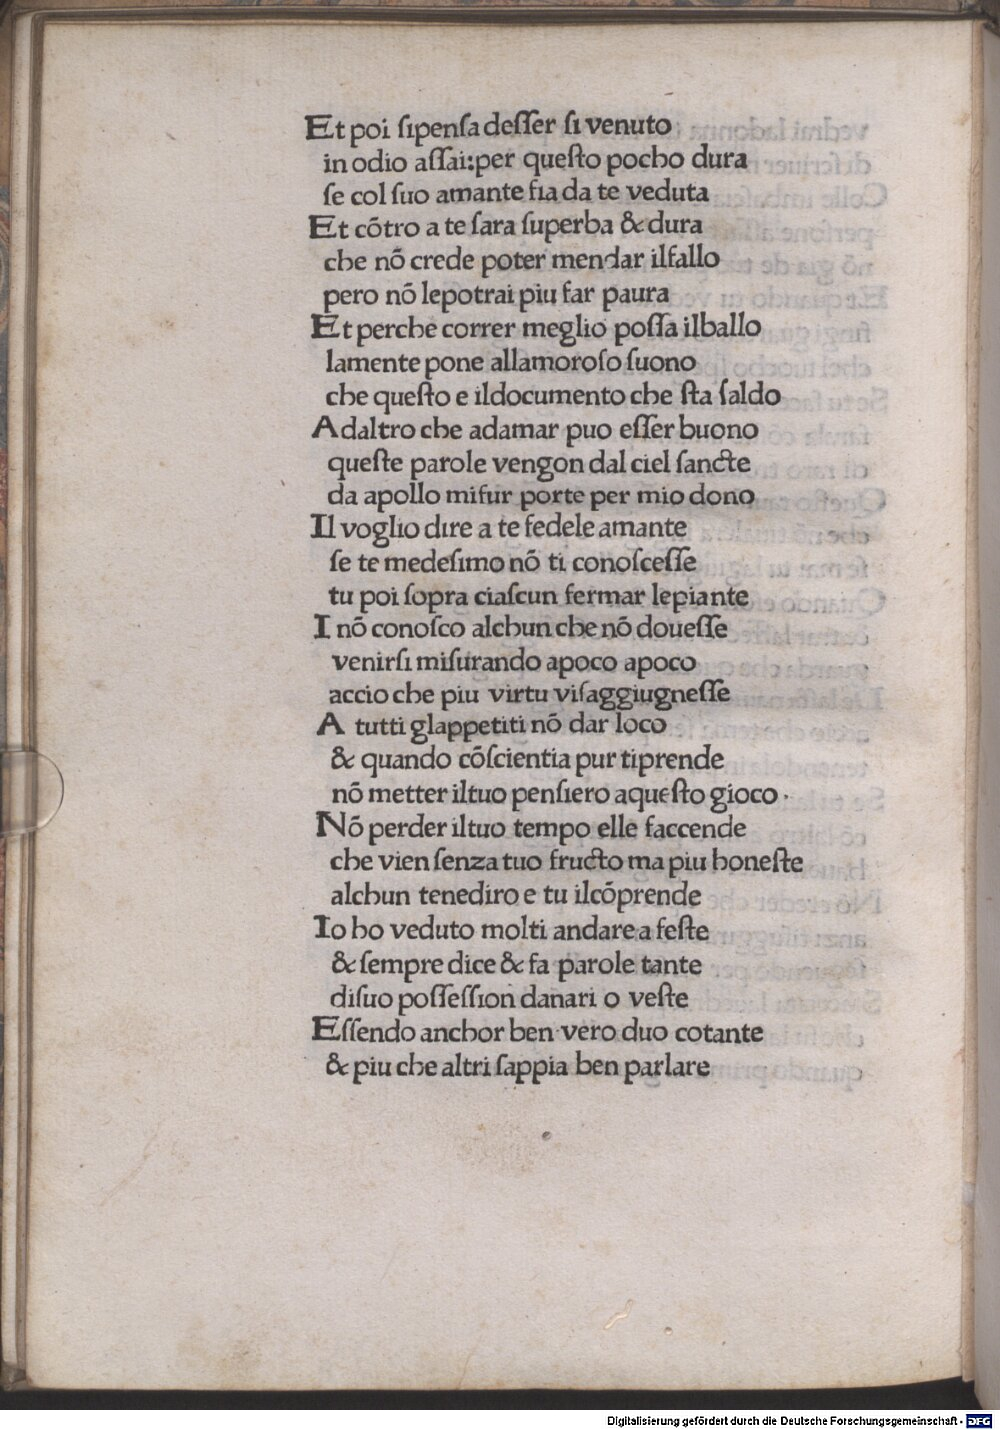 Et poi ſipenſa deſſer ſi venuto
in odio aſſai:per queſto pocho dura
ſe col ſuo amante fia da te veduta
Et cõtro a te ſara ſuperba & dura
che nõ crede poter mendar ilfallo
pero nõ lepotrai piu far paura
Et perche correr meglio poſſa ilballo
lamente pone allamoroſo ſuono
che queſto e ildocumento che ſta ſaldo
Adaltro che adamar puo eſſer buono
queſte parole vengon dal ciel ſancte
da apollo mifur porte per mio dono
Il voglio dire a te fedele amante
ſe te medeſimo nõ ti conoſceſſe
tu poi ſopra ciaſcun fermar lepiante
I nõ conoſco alchun che nõ doueſſe
venirſi miſurando apoco apoco
accio che piu virtu viſaggiugneſſe
A tutti glappetiti nõ dar loco
& quando cõſcientia pur tiprende
nõ metter iltuo penſiero aqueſto gioco ·
Nõ perder iltuo tempo elle faccende
che vien ſenza tuo fructo ma piu honeſte
alchun tenediro e tu ilcõprende
Io ho veduto molti andare a feſte
& ſempre dice & fa parole tante
diſuo poſſeſſion danari o veſte
Eſſendo anchor ben vero duo cotante
& piu che altri ſappia ben parlare
Digitalisierung gefördert durch die Deutsche Forschungsgemeinschaft - DFG